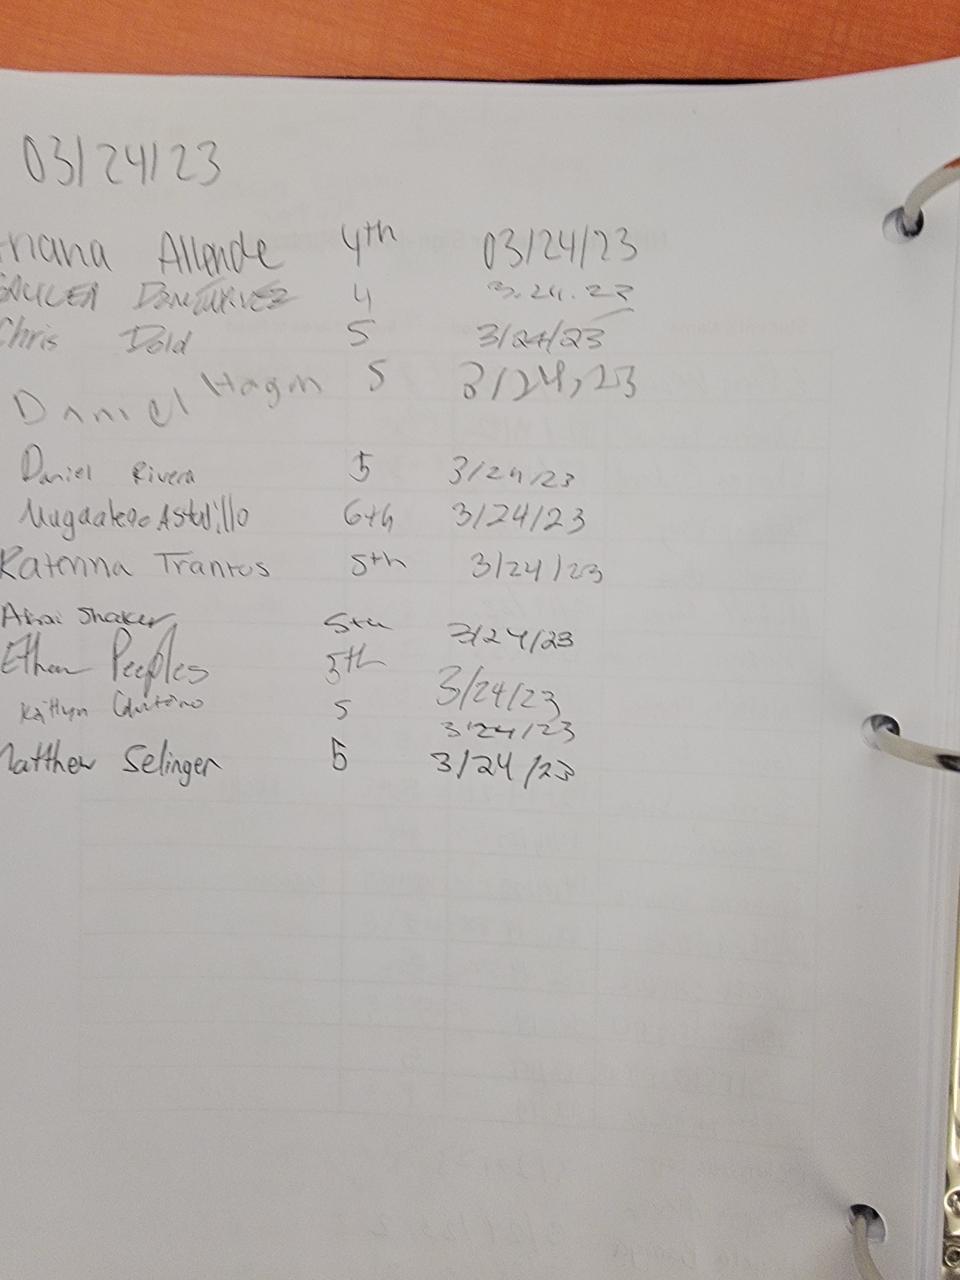 03/24/23
Allende 4th 03/24/23
4 3.24.23
Chris Dold 5 3/24/23
Daniel Hagm 5 3/24,23
Daniel Rivera 5 3/24/23
Astudillo 6th 3/24/23
Katerina Trantos 5th 3/24/23
Shaker 5th 3/24/23
Ethan Peeples 5th 3/24/23
Kaitlyn 5 3/24/23
Matthew Selinger 5 3/24/23